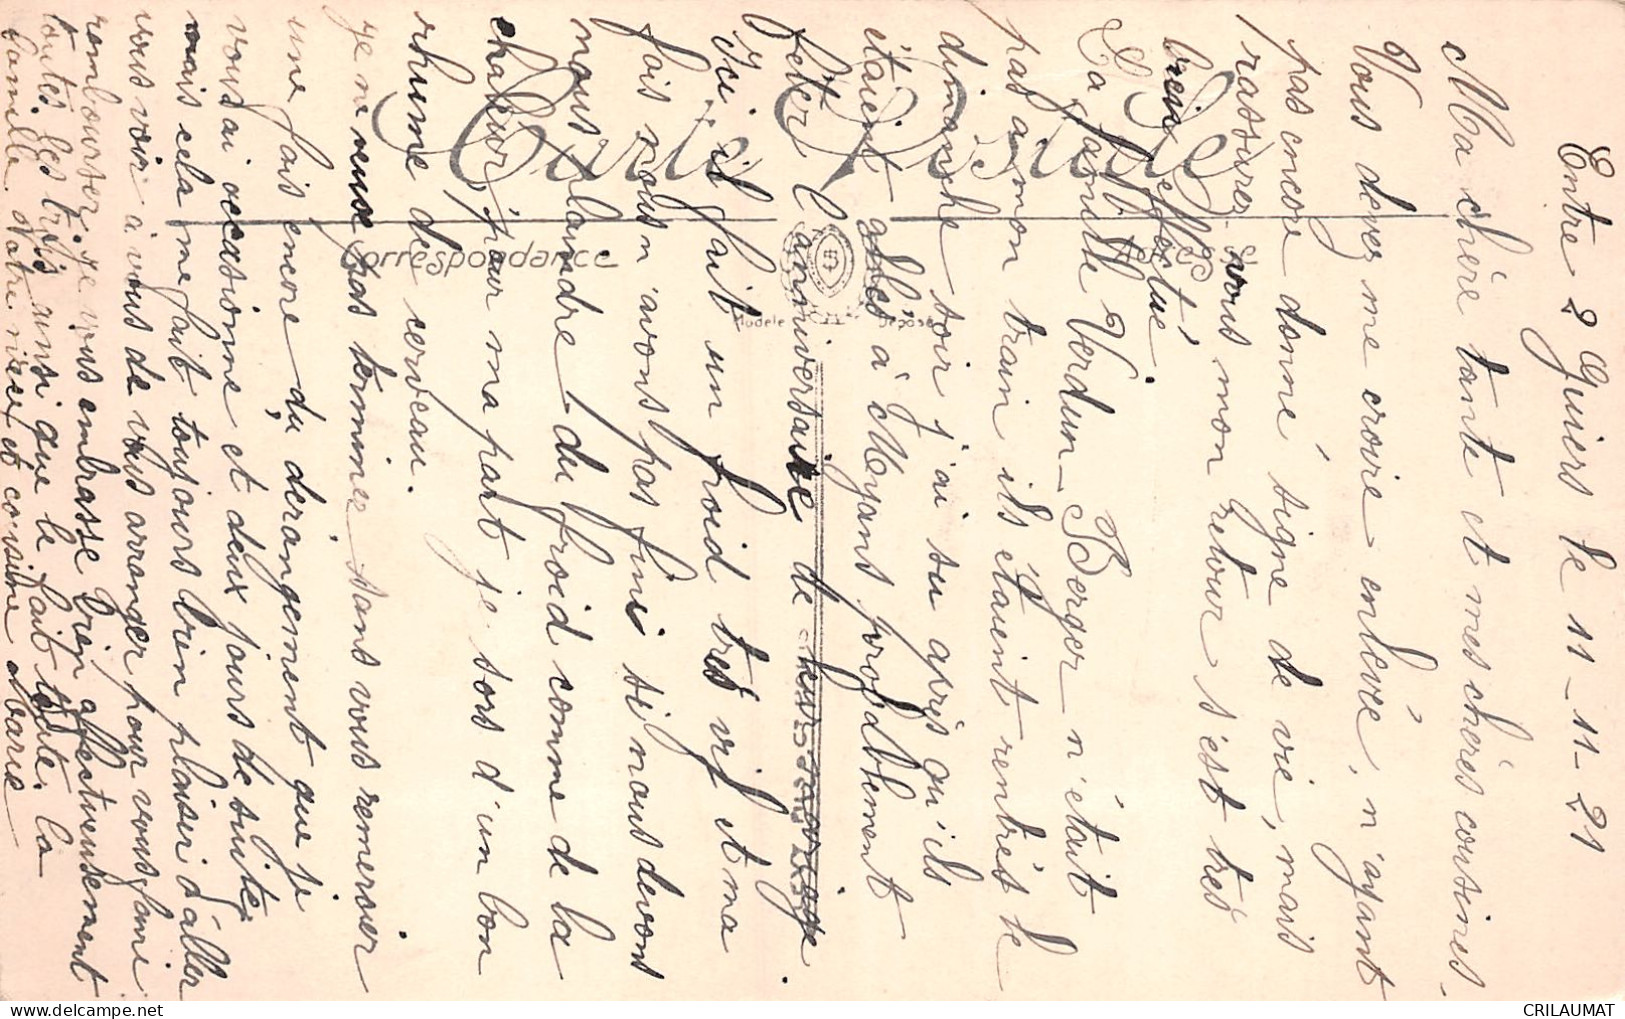 Entre 2 Guiers le 11-11-21
Ma chère tante et mes chères cousines.
Vous devez me croire enlevée, n'ayant
pas encore donné signe de vie, mais
rassurez-vous mon retour s'est très
bien effectué.
La famille Verdun-Berger n'était
pas à mon train ils étaient rentrés le
dimanche soir j'ai su après qu'ils
étaient allés à Meyans probablement
fêter l'anniversaire de
Ici il fait un froid très vif et ma
fois nous n'avons pas fini si nous devons
nous plaindre du froid comme de la
chaleur, pour ma part je sors d'un bon
rhume de cerveau.
Je ne veux pas terminer sans vous remercier
une fois encore du dérangement que je
vous ai occasionné et deux jours de suite,
mais cela me fait toujours bien plaisir d'aller
vous voir à vous de vous arranger pour vous faire
rembourser. Je vous embrasse bien affectueusement
toutes les trois ainsi que le fait toute la
famille. Votre nièce et cousine Marie
Carte Postale
Correspondance
Modèle Déposé
CRILAUMAT